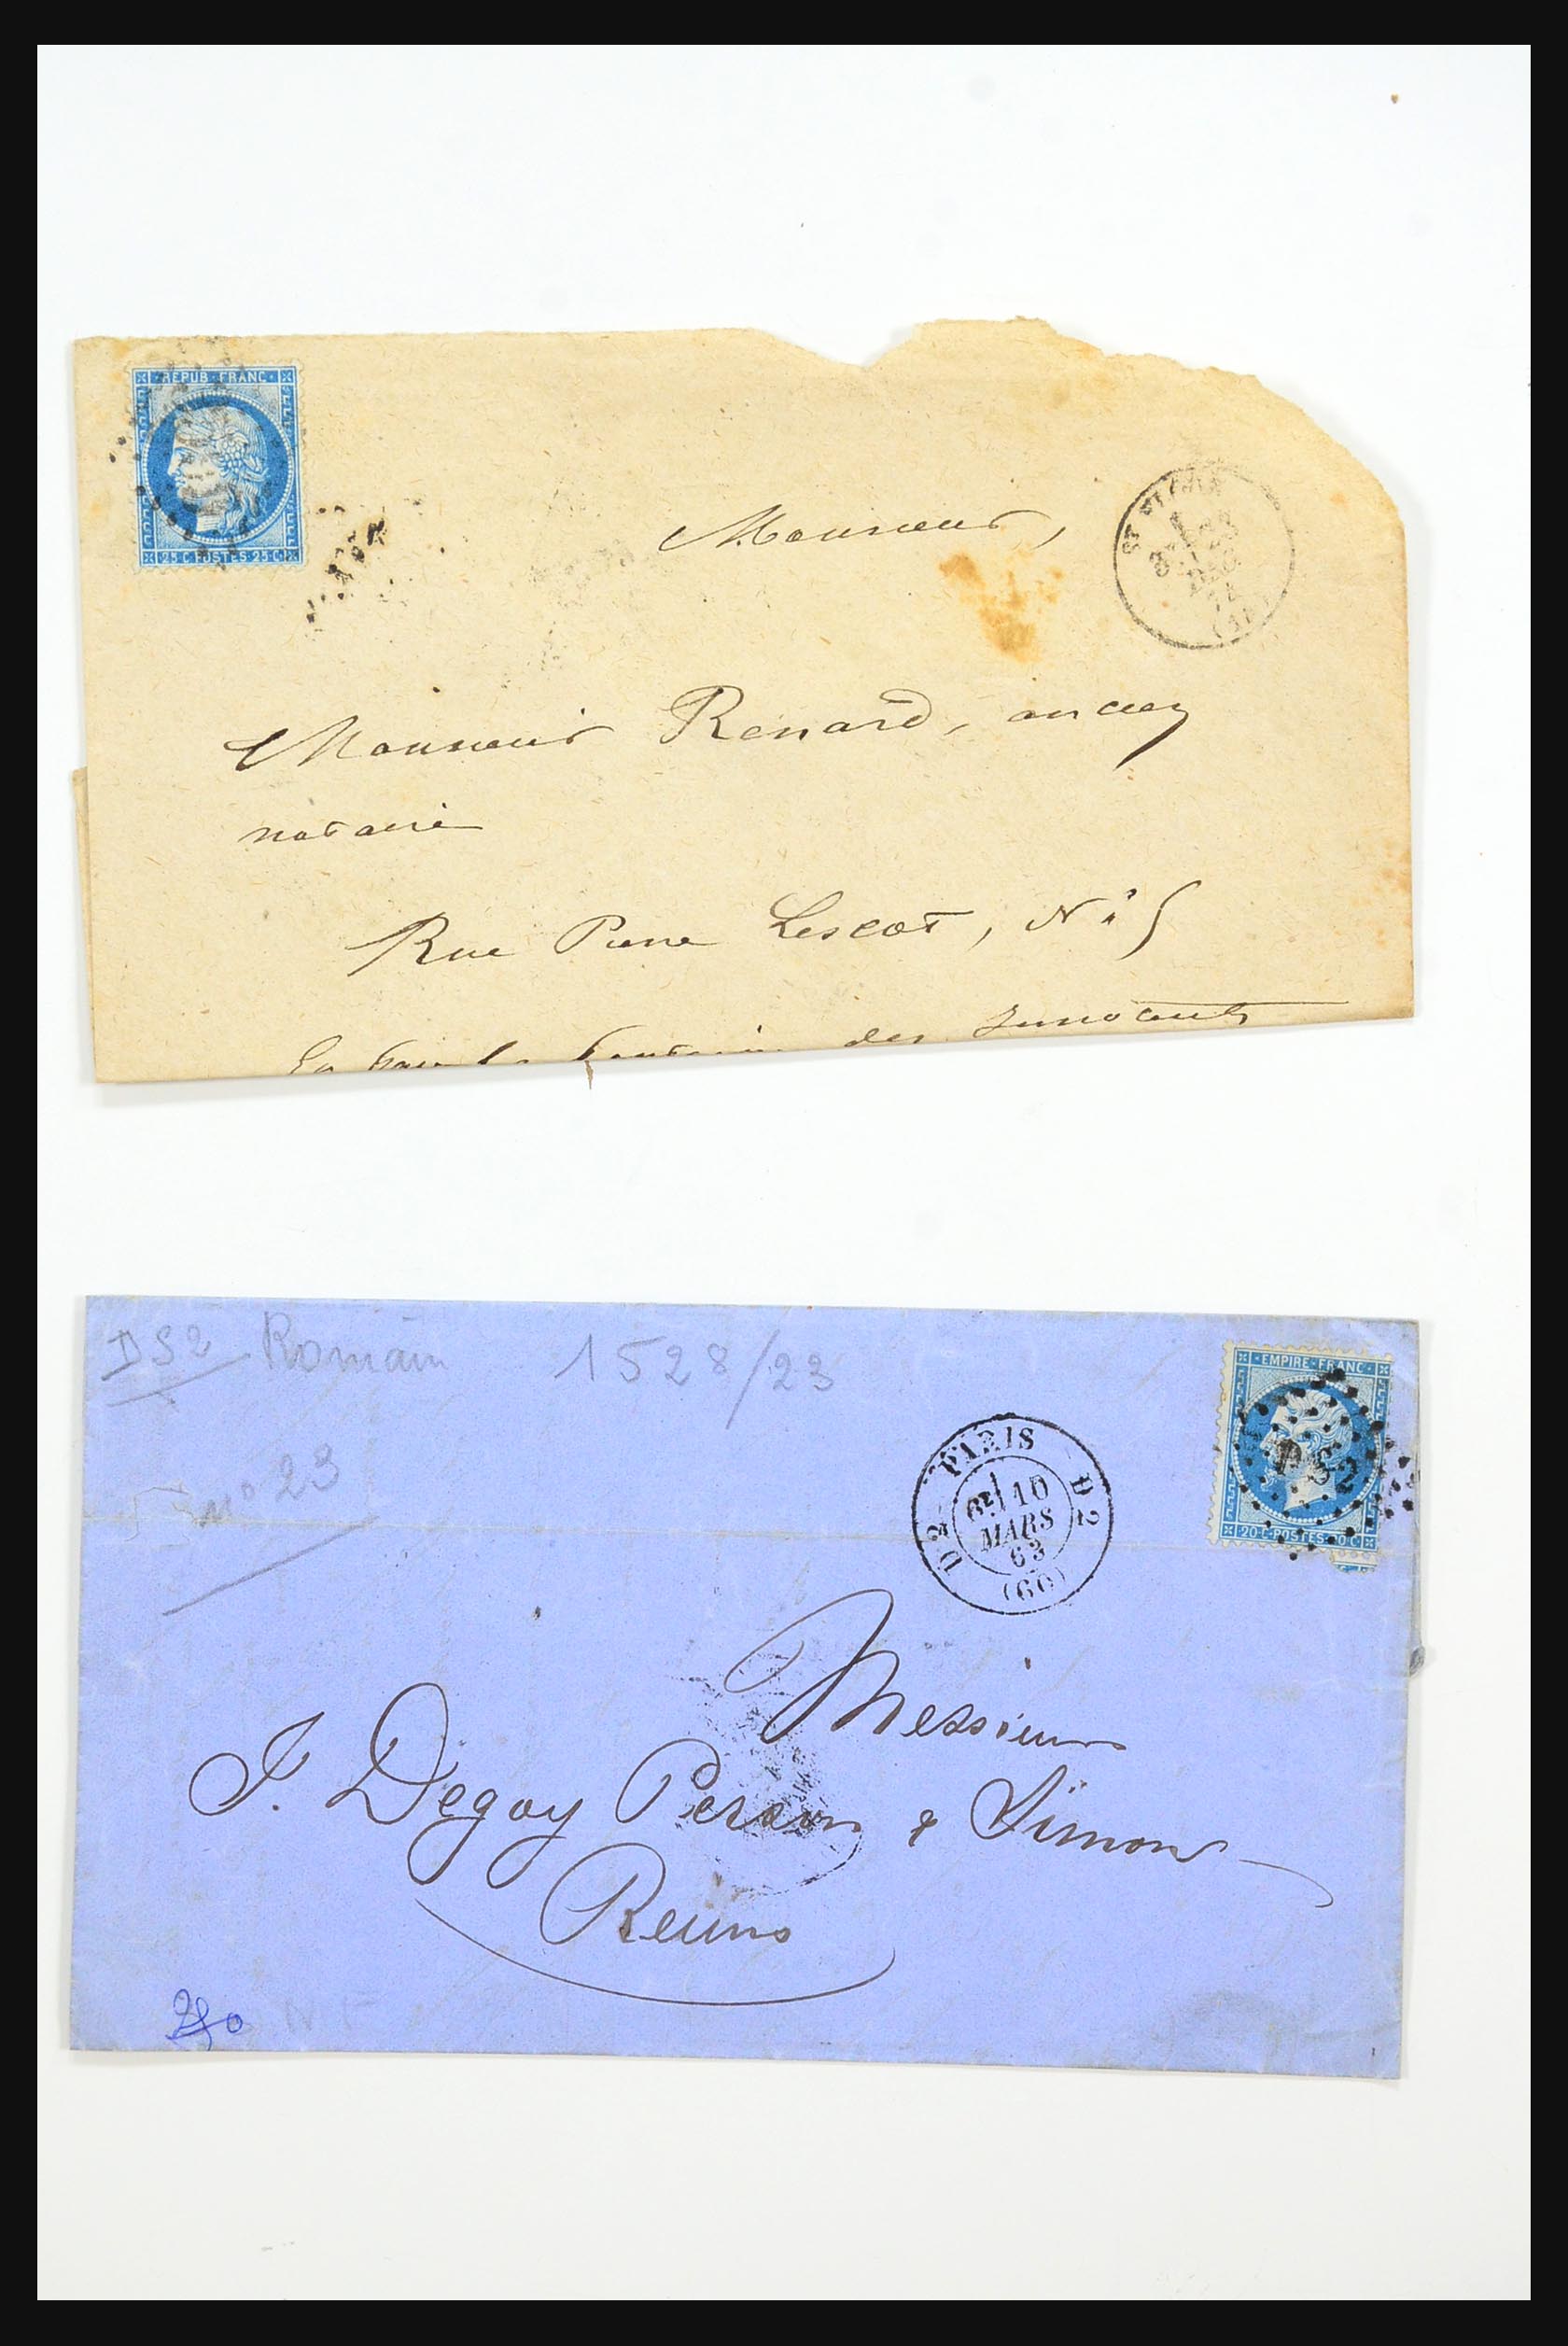 REPUB·FRANC
25 C POSTES 25 C
Monsieur,
Monsieur Renard, ancien
notaire
Rue Pierre Lescot, N° 5
des Innocents
DS2 Romain 1528/23
n° 23
EMPIRE·FRANC
20 C·POSTES·20 C
DS2
D2 PARIS D2
6E 10
MARS
63
(60)
Messieurs
J. Degoy Person & Simon
Reims